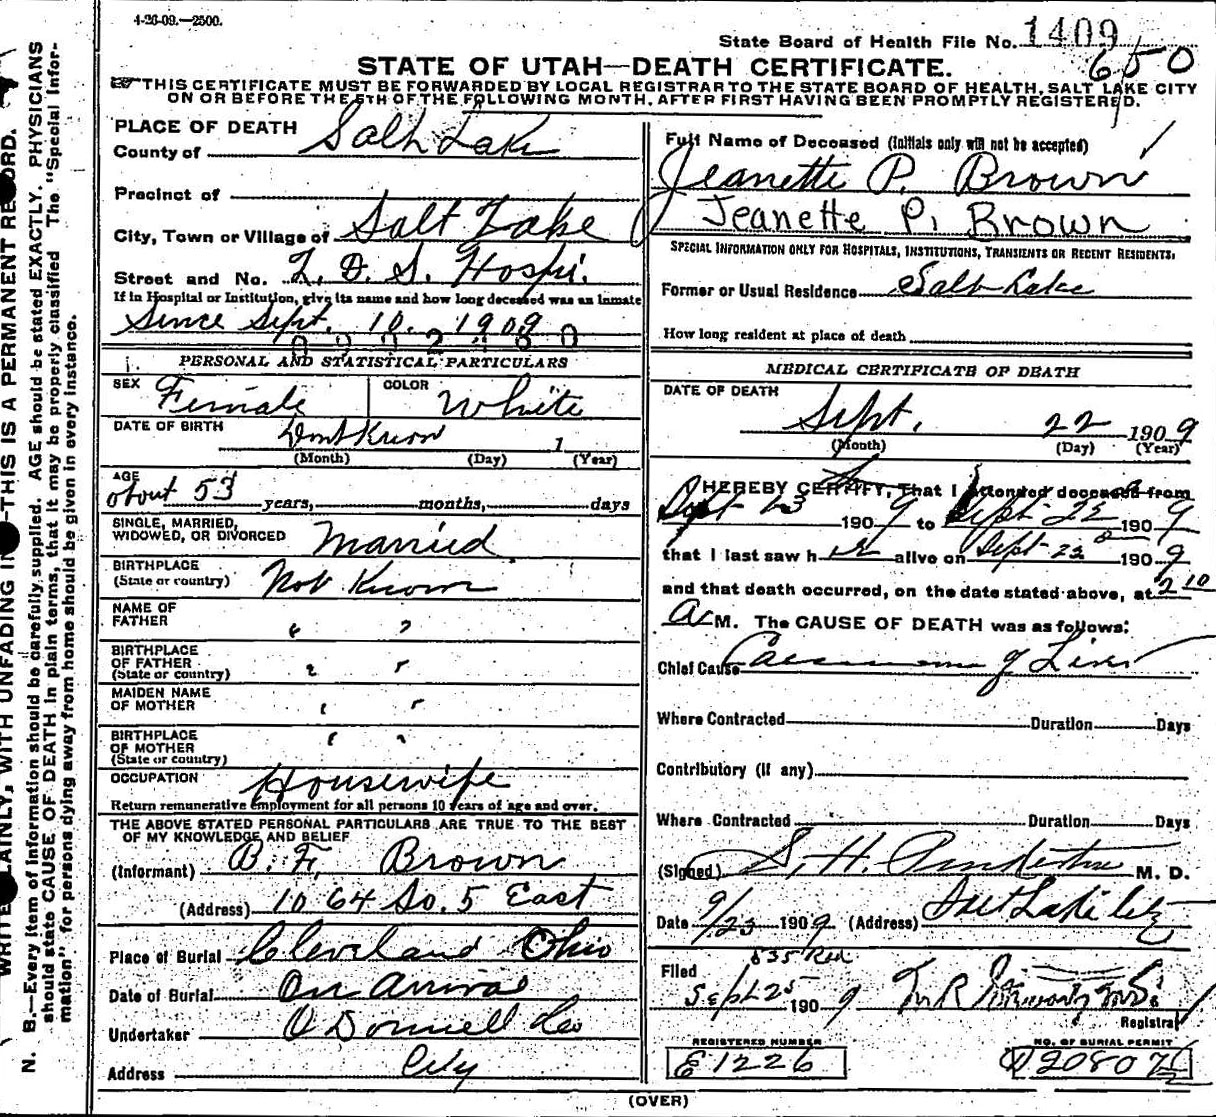 4-26-09.—2500.
State Board of Health File No. 1409
650
STATE OF UTAH—DEATH CERTIFICATE.
THIS CERTIFICATE MUST BE FORWARDED BY LOCAL REGISTRAR TO THE STATE BOARD OF HEALTH, SALT LAKE CITY
ON OR BEFORE THE 5TH OF THE FOLLOWING MONTH, AFTER FIRST HAVING BEEN PROMPTLY REGISTERED.
PLACE OF DEATH
County of Salt Lake
Precinct of
City, Town or Village of Salt Lake
Street and No. L. D. S. Hospi.
If in Hospital or Institution, give its name and how long deceased was an inmate
Since Sept. 10. 1909
PERSONAL AND STATISTICAL PARTICULARS
SEX Female COLOR White
DATE OF BIRTH Dont Know 1
(Month) (Day) (Year)
AGE about 53 years, months, days
SINGLE, MARRIED, WIDOWED, OR DIVORCED Married
BIRTHPLACE (State or country) Not Known
NAME OF FATHER " "
BIRTHPLACE OF FATHER (State or country) " "
MAIDEN NAME OF MOTHER " "
BIRTHPLACE OF MOTHER (State or country) " "
OCCUPATION Housewife
Return remunerative employment for all persons 10 years of age and over.
THE ABOVE STATED PERSONAL PARTICULARS ARE TRUE TO THE BEST
OF MY KNOWLEDGE AND BELIEF
(Informant) B. F. Brown
(Address) 1064 So. 5 East
Place of Burial Cleveland Ohio
Date of Burial On Arrival
Undertaker O Donnell & Co
Address City
Full Name of Deceased (Initials only will not be accepted)
Jeanette P. Brown
Jeanette P. Brown
SPECIAL INFORMATION ONLY FOR HOSPITALS, INSTITUTIONS, TRANSIENTS OR RECENT RESIDENTS:
Former or Usual Residence Salt Lake
How long resident at place of death
MEDICAL CERTIFICATE OF DEATH
DATE OF DEATH
Sept. 22 1909
(Month) (Day) (Year)
I HEREBY CERTIFY, That I attended deceased from
Sept 13 1909 to Sept 22 1909
that I last saw her alive on Sept 22 1909
and that death occurred, on the date stated above, at 2 10
A M. The CAUSE OF DEATH was as follows:
Chief Cause Carcinoma of Liver
Where Contracted Duration Days
Contributory (if any)
Where Contracted Duration Days
(Signed) S. H. M. D.
Date 9/23 1909 (Address) Salt Lake City
535 Red
Filed Sept 25 1909
Registrar
REGISTERED NUMBER
E1226
NO. OF BURIAL PERMIT
(OVER)
WRITE PLAINLY, WITH UNFADING INK—THIS IS A PERMANENT RECORD.
N. B.—Every item of information should be carefully supplied. AGE should be stated EXACTLY. PHYSICIANS
should state CAUSE OF DEATH in plain terms, that it may be properly classified. The "Special Infor-
mation" for persons dying away from home should be given in every instance.